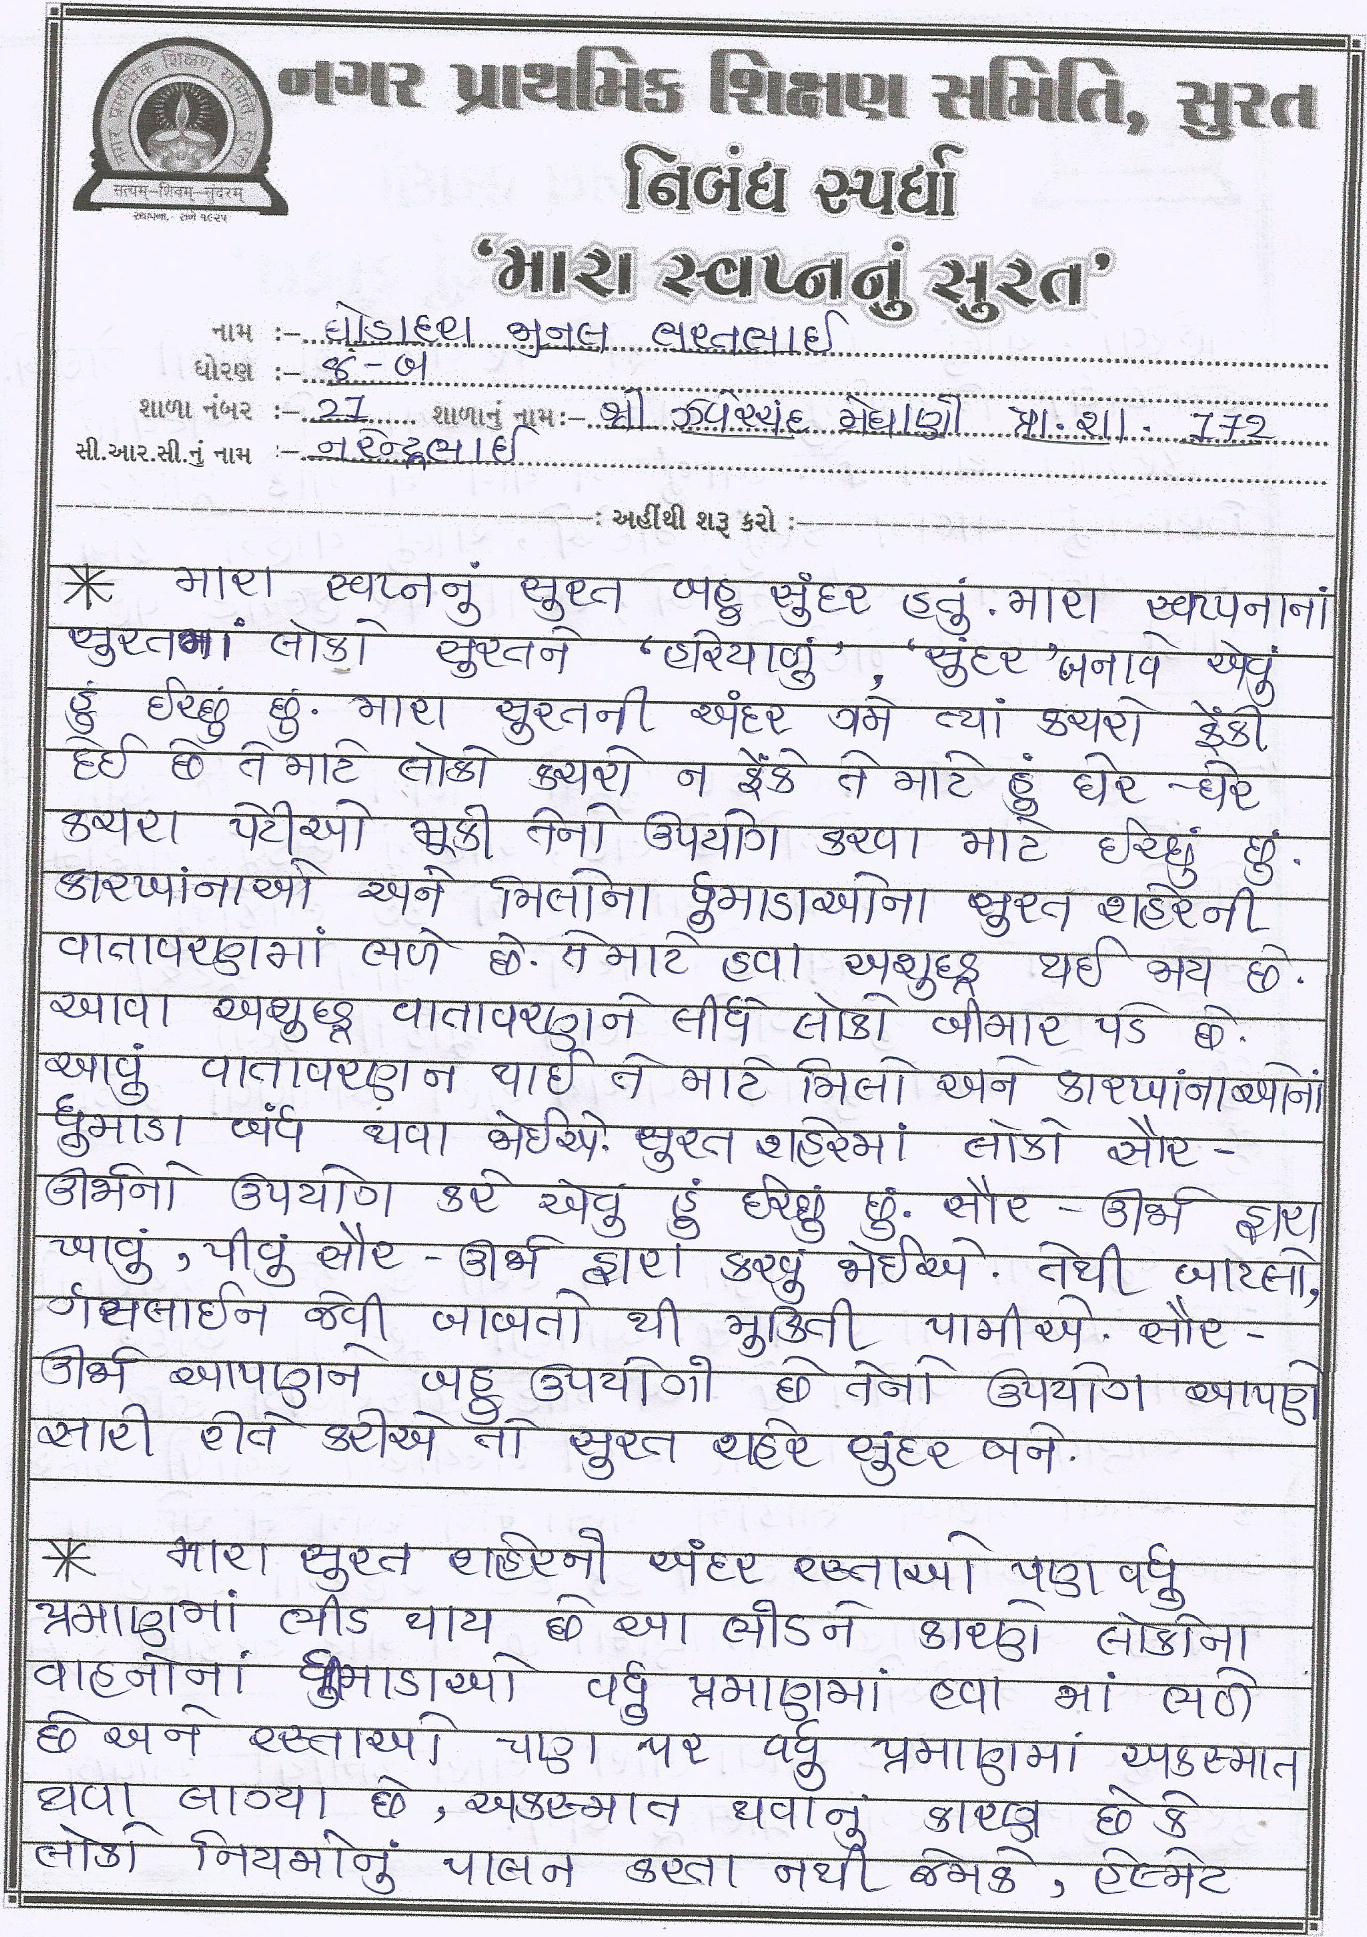 નગર પ્રાથમિક શિક્ષણ સમિતિ, સુરત
નગર પ્રાથમિક શિક્ષણ સમિતિ સુરત
સત્યમ્-શિવમ્-સુંદરમ્
સ્થાપના.- સને ૧૯૨૫
નિબંધ સ્પર્ધા
‘મારા સ્વપ્નનું સુરત’
નામ :- ઘોડાદરા મુનલ ભરતભાઈ
ધોરણ :- ૪-બ
શાળા નંબર :- 27 શાળાનું નામ:- શ્રી ઝવેરચંદ મેઘાણી પ્રા.શા. 172
સી.આર.સી.નું નામ :- નરેન્દ્રભાઈ
: અહીંથી શરૂ કરો :
* મારા સ્વપ્નનું સુરત બહુ સુંદર હતું. મારા સ્વપ્પનાનાં
સુરતમાં લોકો સુરતને ‘હરિયાળું’, ‘સુંદર’ બનાવે એવું
હું ઈચ્છું છું. મારા સુરતની અંદર ગમે ત્યાં કચરો ફેંકી
દેઈ છે તે માટે લોકો કચરો ન ફેંકે તે માટે હું ઘેર -ઘેર
કચરા પેટીઓ મૂકી તેનો ઉપયોગ કરવા માટે ઈચ્છું છું.
કારખાંનાઓ અને મિલોના ધુમાડાઓના સુરત શહેરની
વાતાવરણમાં ભળે છે. તે માટે હવા અશુદ્ધ થઈ જાય છે.
આવા અશુદ્ધ વાતાવરણને લીધે લોકો બીમાર પડે છે.
આવું વાતાવરણ ન થાઈ તે માટે મિલો અને કારખાંનાઓનાં
ધુમાડા બંધ થવા જોઈએ. સુરત શહેરમાં લોકો સૌર -
ઊર્જાનો ઉપયોગ કરે એવું હું ઈચ્છું છું. સૌર - ઊર્જા દ્વારા
ખાવું, પીવું સૌર - ઊર્જા દ્વારા કરવું જોઈએ. તેથી બાટલો,
ગેસલાઈન જેવી બાબતો થી મુકિતી પામીએ. સૌર -
ઊર્જા આપણને બહુ ઉપયોગી છે તેનો ઉપયોગ આપણે
સારી રીતે કરીએ તો સુરત શહેર સુંદર બને.
* મારા સુરત શહેરની અંદર રસ્તાઓ પણ વધુ
પ્રમાણમાં ભીડ થાય છે આ ભીડને કારણે લોકોના
વાહનોનાં ધુમાડાઓ વધુ પ્રમાણમાં હવા માં ભળે
છે અને રસ્તાઓ પણ પર વધુ પ્રમાણમાં અકસ્માત
થવા લાગ્યા છે, અકસ્માત થવાનું કારણ છે કે
લોકો નિયમોનું પાલન કરતા નથી જેમકે, હેલ્મેટ